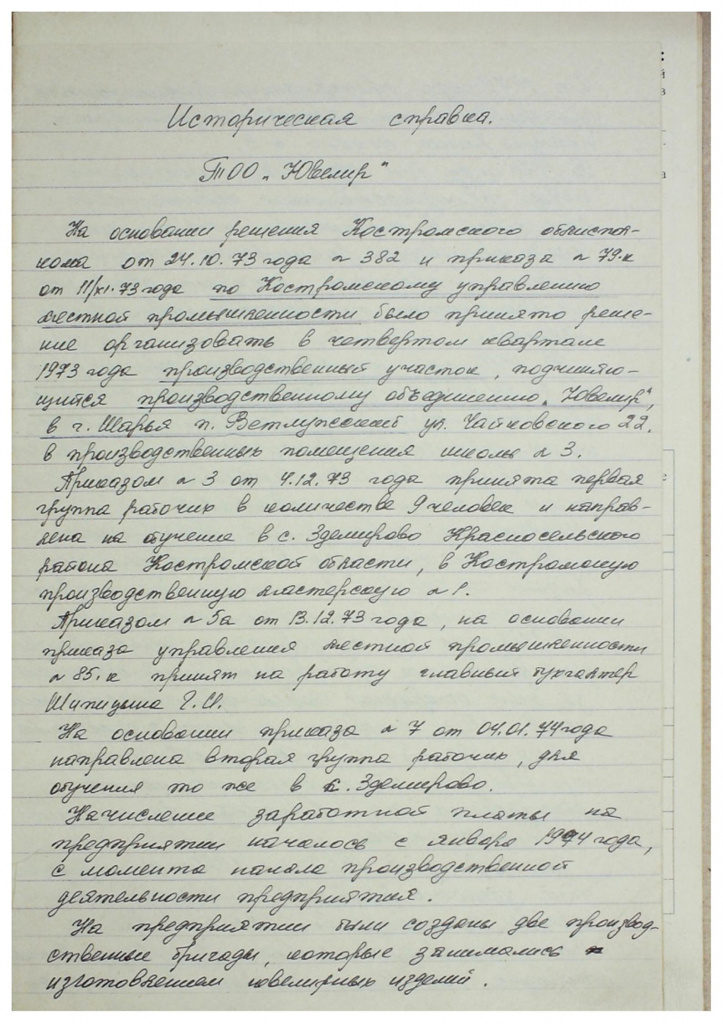 Историческая справка.
ТОО „Ювелир"
На основании решения Костромского облиспол-
кома от 24.10.73 года № 382 и приказа № 79-к
от 11/XI.73 года по Костромскому управлению
местной промышленности было принято реше-
ние организовать в четвертом квартале
1973 года производственный участок, подчиняю-
щийся производственному объединению „Ювелир",
в г. Шарья п. Ветлужский ул. Чайковского 22.
в производственных помещения школы № 3.
Приказом № 3 от 4.12.73 года принята первая
группа рабочих в количестве 9 человек и направ-
лена на обучение в с. Здемирово Красносельского
района Костромской области, в Костромскую
производственную мастерскую № 1.
Приказом № 5а от 13.12.73 года, на основании
приказа управления местной промышленности
№ 85-к принят на работу главный бухгалтер
Шипицына Г.И.
На основании приказа № 7 от 04.01.74 года
направлена вторая группа рабочих, для
обучения то же в с. Здемирово.
Начисление заработной платы на
предприятии началось с января 1974 года,
с момента начала производственной
деятельности предприятия.
На предприятии были созданы две производ-
ственные бригады, которые занимались
изготовлением ювелирных изделий.